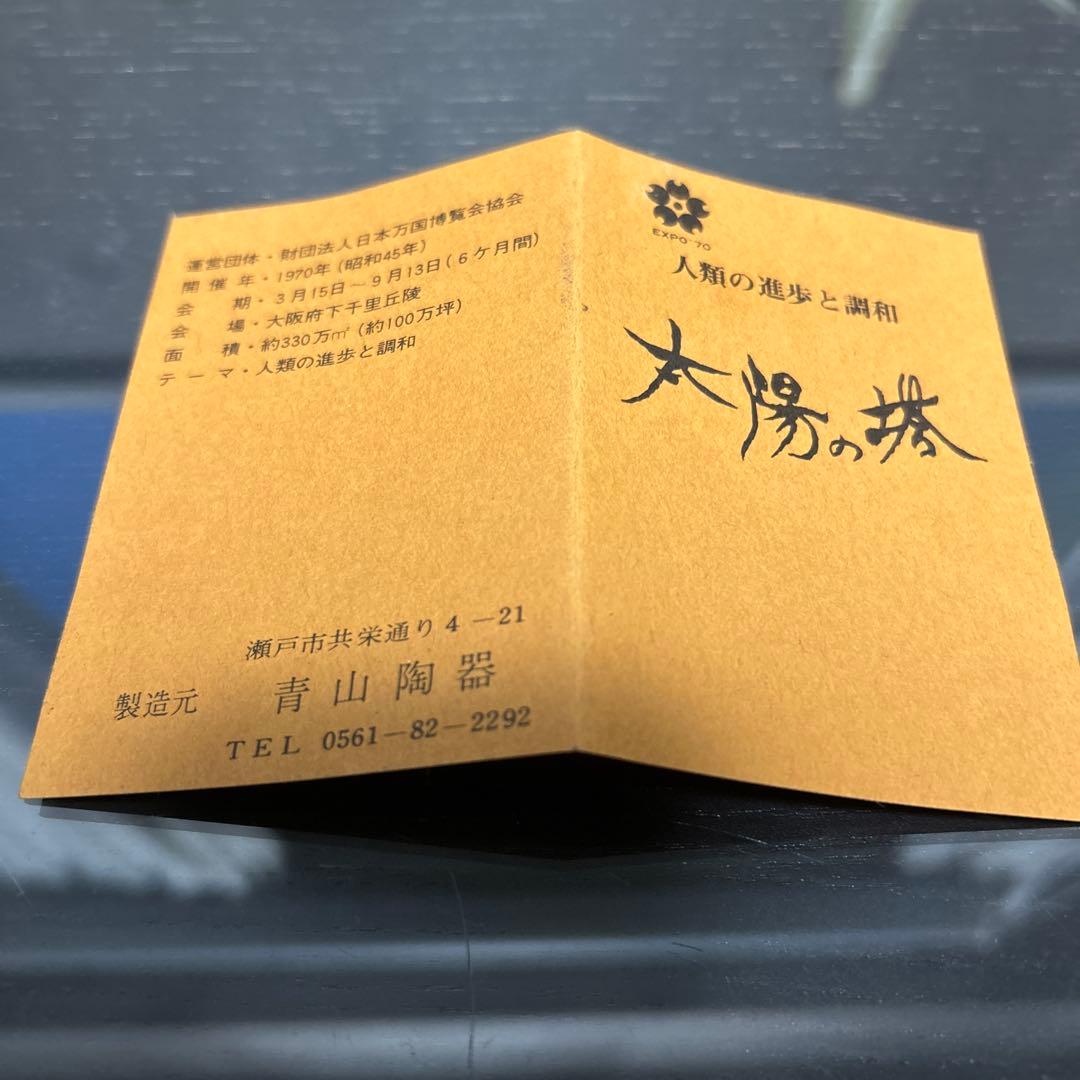 運営団体・財団法人日本万国博覧会協会
開催年・1970年(昭和45年)
会期・3月15日～9月13日(6ケ月間)
会場・大阪府下千里丘陵
面積・約330万㎡(約100万坪)
テーマ・人類の進歩と調和
瀬戸市共栄通り4－21
製造元 青山陶器
TEL 0561－82－2292
EXPO'70
人類の進歩と調和
太陽の塔